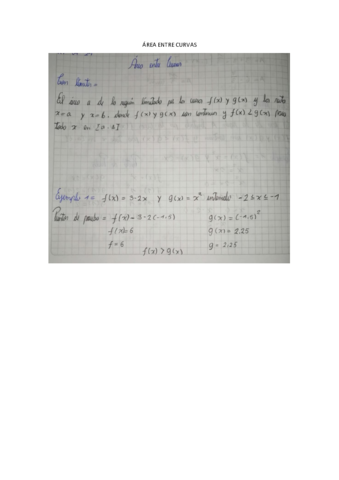 ÁREA ENTRE CURVAS
Area entre Curvas
El area a de la región limitada por las curvas f(x) y g(x) y las rectas
x=a y x=b, donde f(x) y g(x) son continuas y f(x) ≥ g(x) para
todo x en [a b]
Ejemplo 1= f(x) = 3-2x y g(x) = x² intervalo -2 ≤ x ≤ -1
Puntos de prueba = f(x) = 3-2(-1.5) g(x) = (-1.5)²
f(x)= 6 g(x) = 2.25
f = 6 g = 2.25
f(x) > g(x)